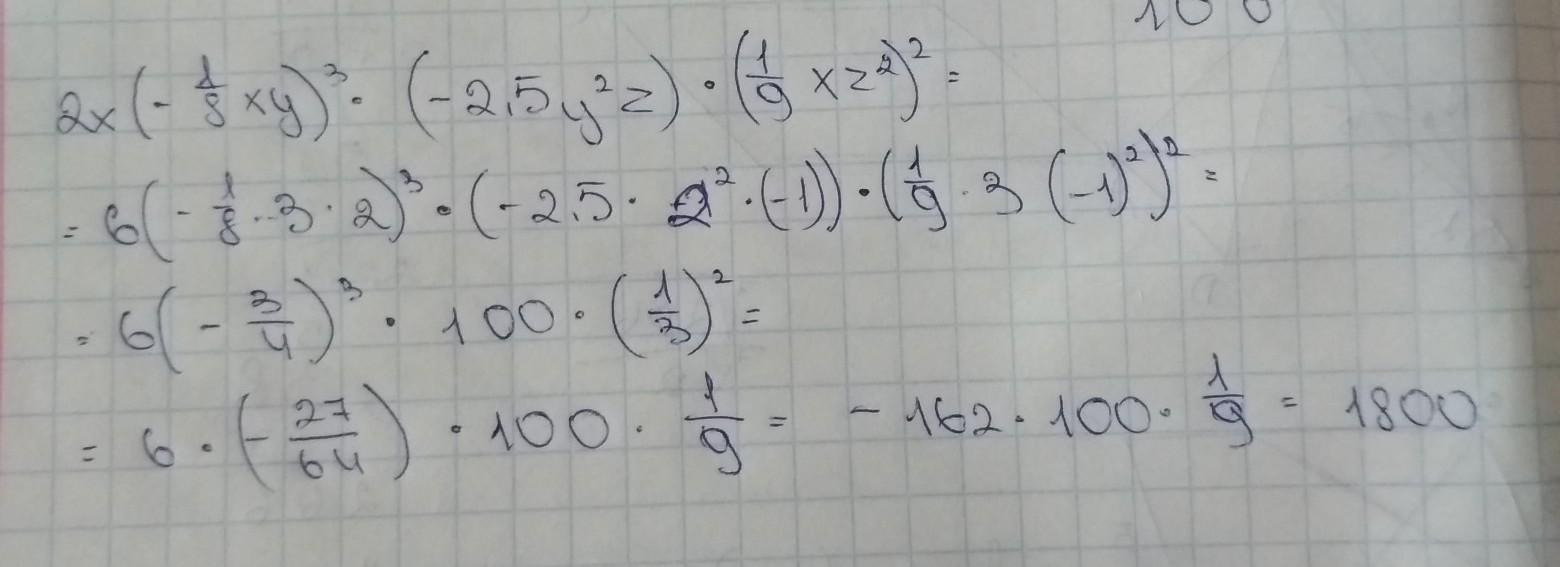 100
2x(-1/8 xy)³ · (-2,5y²z) · (1/9 xz²)² =
= 6(-1/8 · 3 · 2)³ · (-2,5 · 2² · (-1)) · (1/9 · 3 (-1)²)² =
= 6(-3/4)³ · 100 · (1/3)² =
= 6 · (-27/64) · 100 · 1/9 = -162 · 100 · 1/9 = 1800